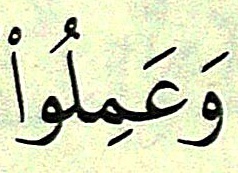 وَعَمِلُوا۟